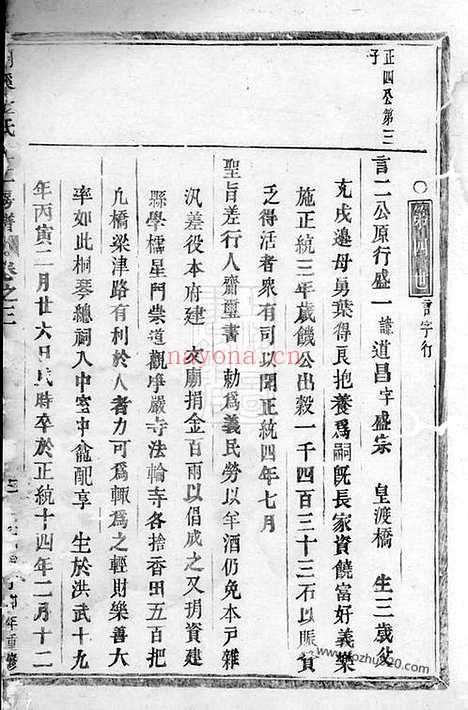 正四公第三
子
第四世
言字行
言二公原行盛一 諱道昌字盛宗 皇渡橋 生三歲父
充戍邊母勇葉得艮抱養爲嗣旣長家資饒富好義樂
施正統三年歲饑公出穀一千四百三十三石以賑貧
乏得活者衆有司以聞正統四年七月
聖旨差行人齎璽書 勅爲義民勞以羊酒仍免本戸雜
汎差役本府建 文廟捐金百兩以倡成之又捐資建
縣學櫺星門崇道觀淨嚴寺法輪寺各捨香田五百把
凡橋梁津路有利於人者力可爲輒爲之輕財樂善大
率如此桐琴總祠入中室中龕配享 生於洪武十九
年丙寅二月廿六日戌時卒於正統十四年二月十二
卷之三
年重修
nayona.cn
www.kozhu920.com